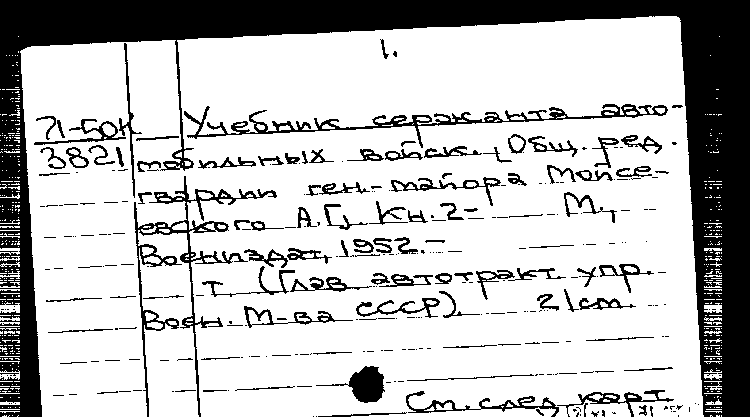 1.
71-50К Учебник сержанта авто-
3821 мобильных войск. [Общ. ред.
гвардии ген.-майора Мойсе-
евского А.Г.]. Кн. 2- М.,
Воениздат, 1952.-
т. (Глав автотракт. упр.
Воен. М-ва СССР). 21cm.
См. след. карт.